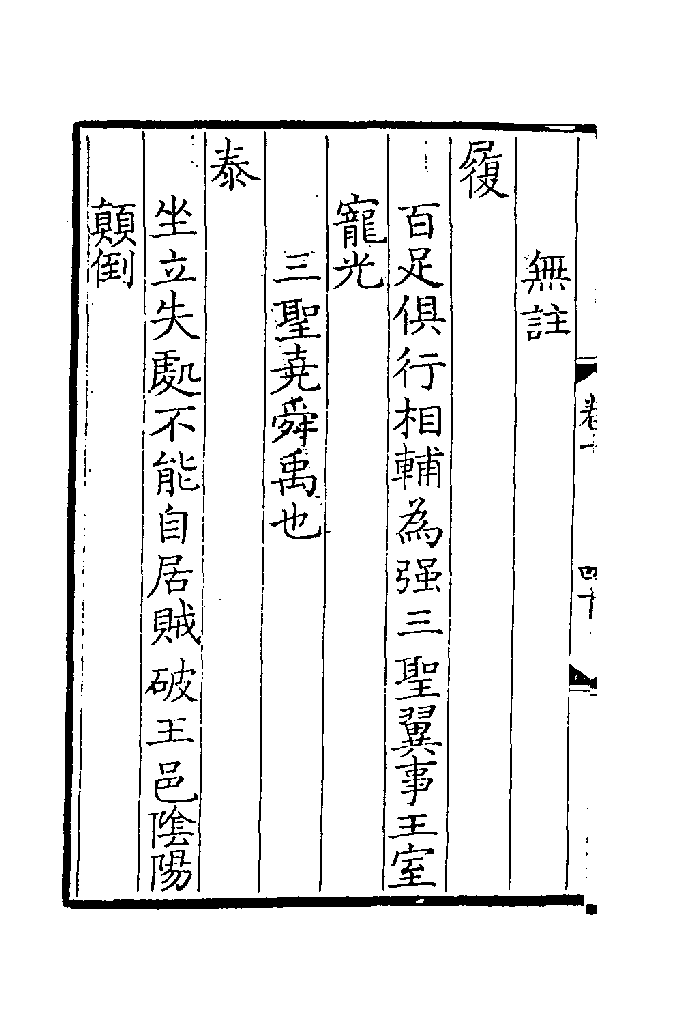 無註
履
百足俱行相輔為强三聖翼事王室
寵光
三聖堯舜禹也
泰
坐立失處不能自居賊破王邑陰陽
顛倒